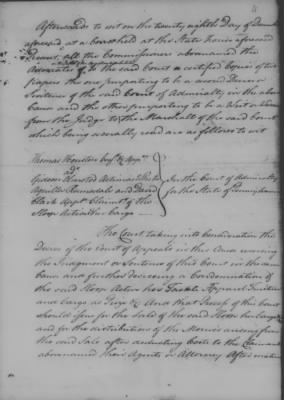 Afterwards to wit on the twenty eighth Day of
aforesaid, at a Court held at the State house aforesaid
Present, all the Commissioners abovenamed the
to the said Court a certified Copies of two
papers the one purporting to be a second Decree or
Sentence of the said Court of Admiralty in the above
Cause and the other purporting to be a Writ
from the Judge to the Marshall of the said Court
which being severally read are as follows to wit
Thomas Houston
ads
Gideon Olmsted
and David
Clark Appts Claimts of the
Sloop Active & her Cargo
In the Court of Admiralty
for the State of Pennsylvania
The Court taking into Consideration the
Decree of the Court of Appeals in this Cause
the Judgment or Sentence of this Court in the same
Cause and further decreeing a Condemnation of
the said Sloop Active her Tackle Apparel Furniture
and Cargo as Prize &c And that Process of this Court
should issue for the Sale of the said Sloop her Cargo &c
and for the distribution of the Monies arising from
the said Sale after deducting Costs to the Claimants
abovenamed their Agents or Attorney After mature